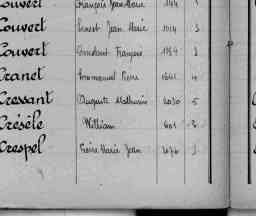 Couvert François Jean Marie 1144 1
Couvert Ernest Jean Marie 1014 3
Couvert Constant François 1154 3
Cranet Emmanuel Pierre 1641 4
Cressant Auguste Mathurin 2030 5
Crésèle William 601 2
Crespel Pierre Marie Jean 2076